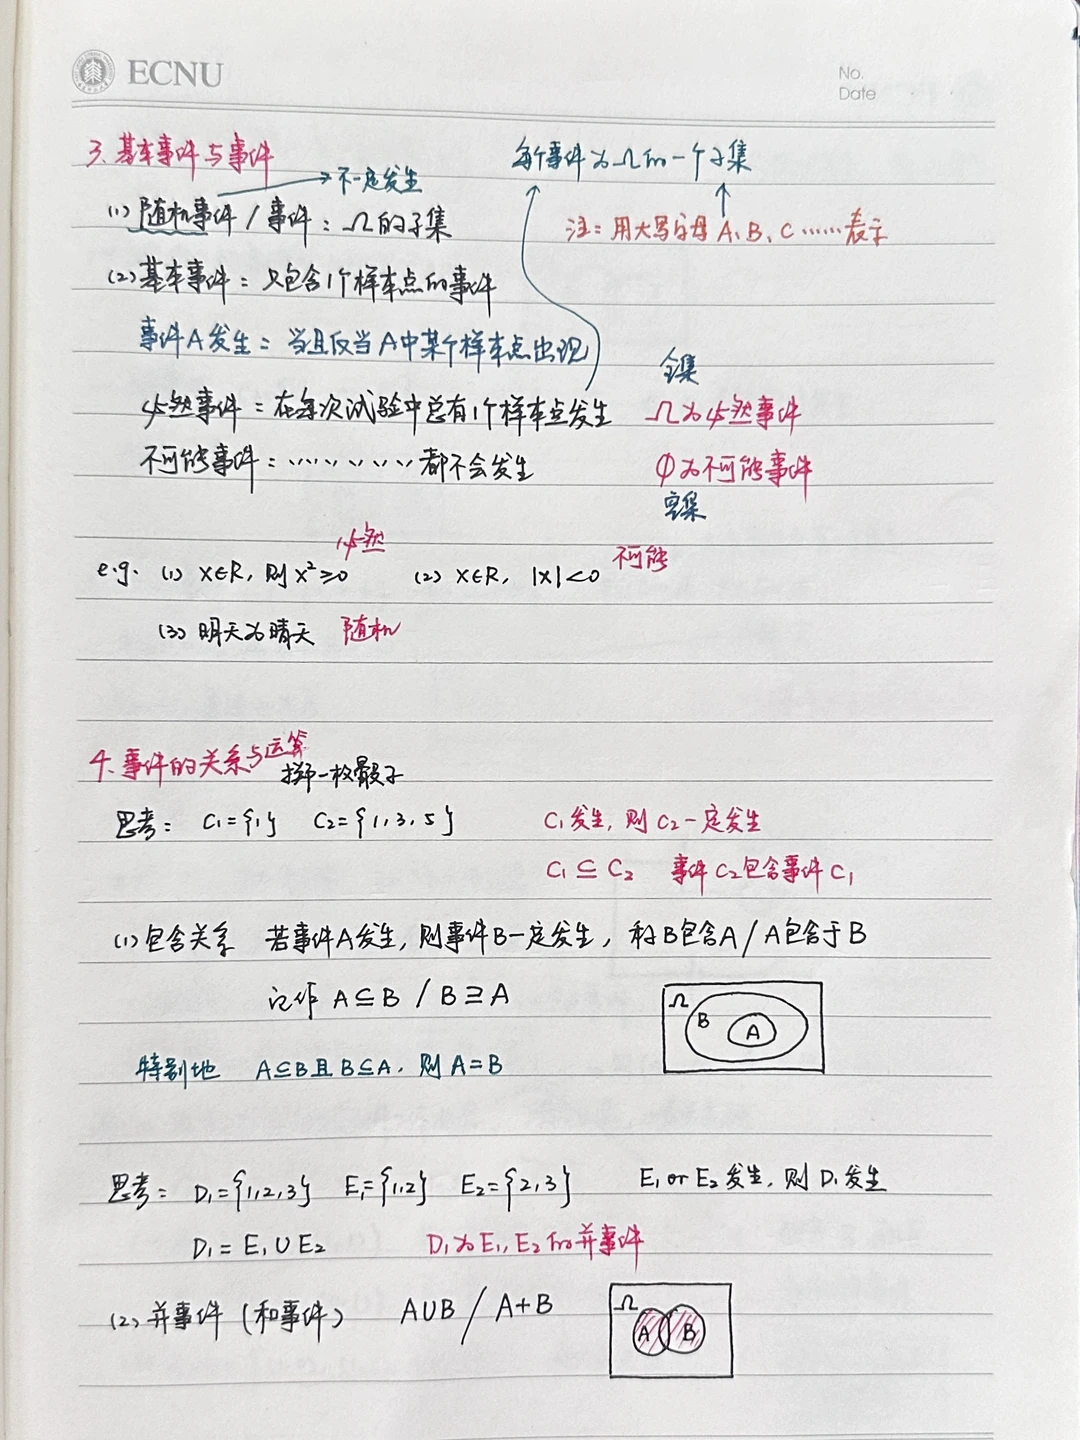 ECNU
No.
Date
3. 基本事件与事件
每个事件为Ω的一个子集
不一定发生
(1) 随机事件 / 事件：Ω的子集
注：用大写字母 A、B、C ……表示
(2) 基本事件：只包含1个样本点的事件
事件A发生：当且仅当A中某个样本点出现
全集
必然事件：在每次试验中总有1个样本点发生
Ω为必然事件
不可能事件：…………都不会发生
∅为不可能事件
空集
必然
不可能
e.g. (1) X∈R, 则 X²≥0 (2) X∈R, |X|<0
(3) 明天为晴天 随机
4. 事件的关系与运算
掷一枚骰子
思考： C₁={1} C₂={1,3,5} C₁发生, 则C₂一定发生
C₁⊆C₂ 事件C₂包含事件C₁
(1) 包含关系 若事件A发生, 则事件B一定发生, 称B包含A / A包含于B
记作 A⊆B / B⊇A
Ω
B
A
特别地 A⊆B且B⊆A, 则A=B
思考： D₁={1,2,3} E₁={1,2} E₂={2,3} E₁ or E₂发生, 则D₁发生
D₁=E₁∪E₂ D₁为E₁, E₂的并事件
(2) 并事件 (和事件) A∪B / A+B
Ω
A B